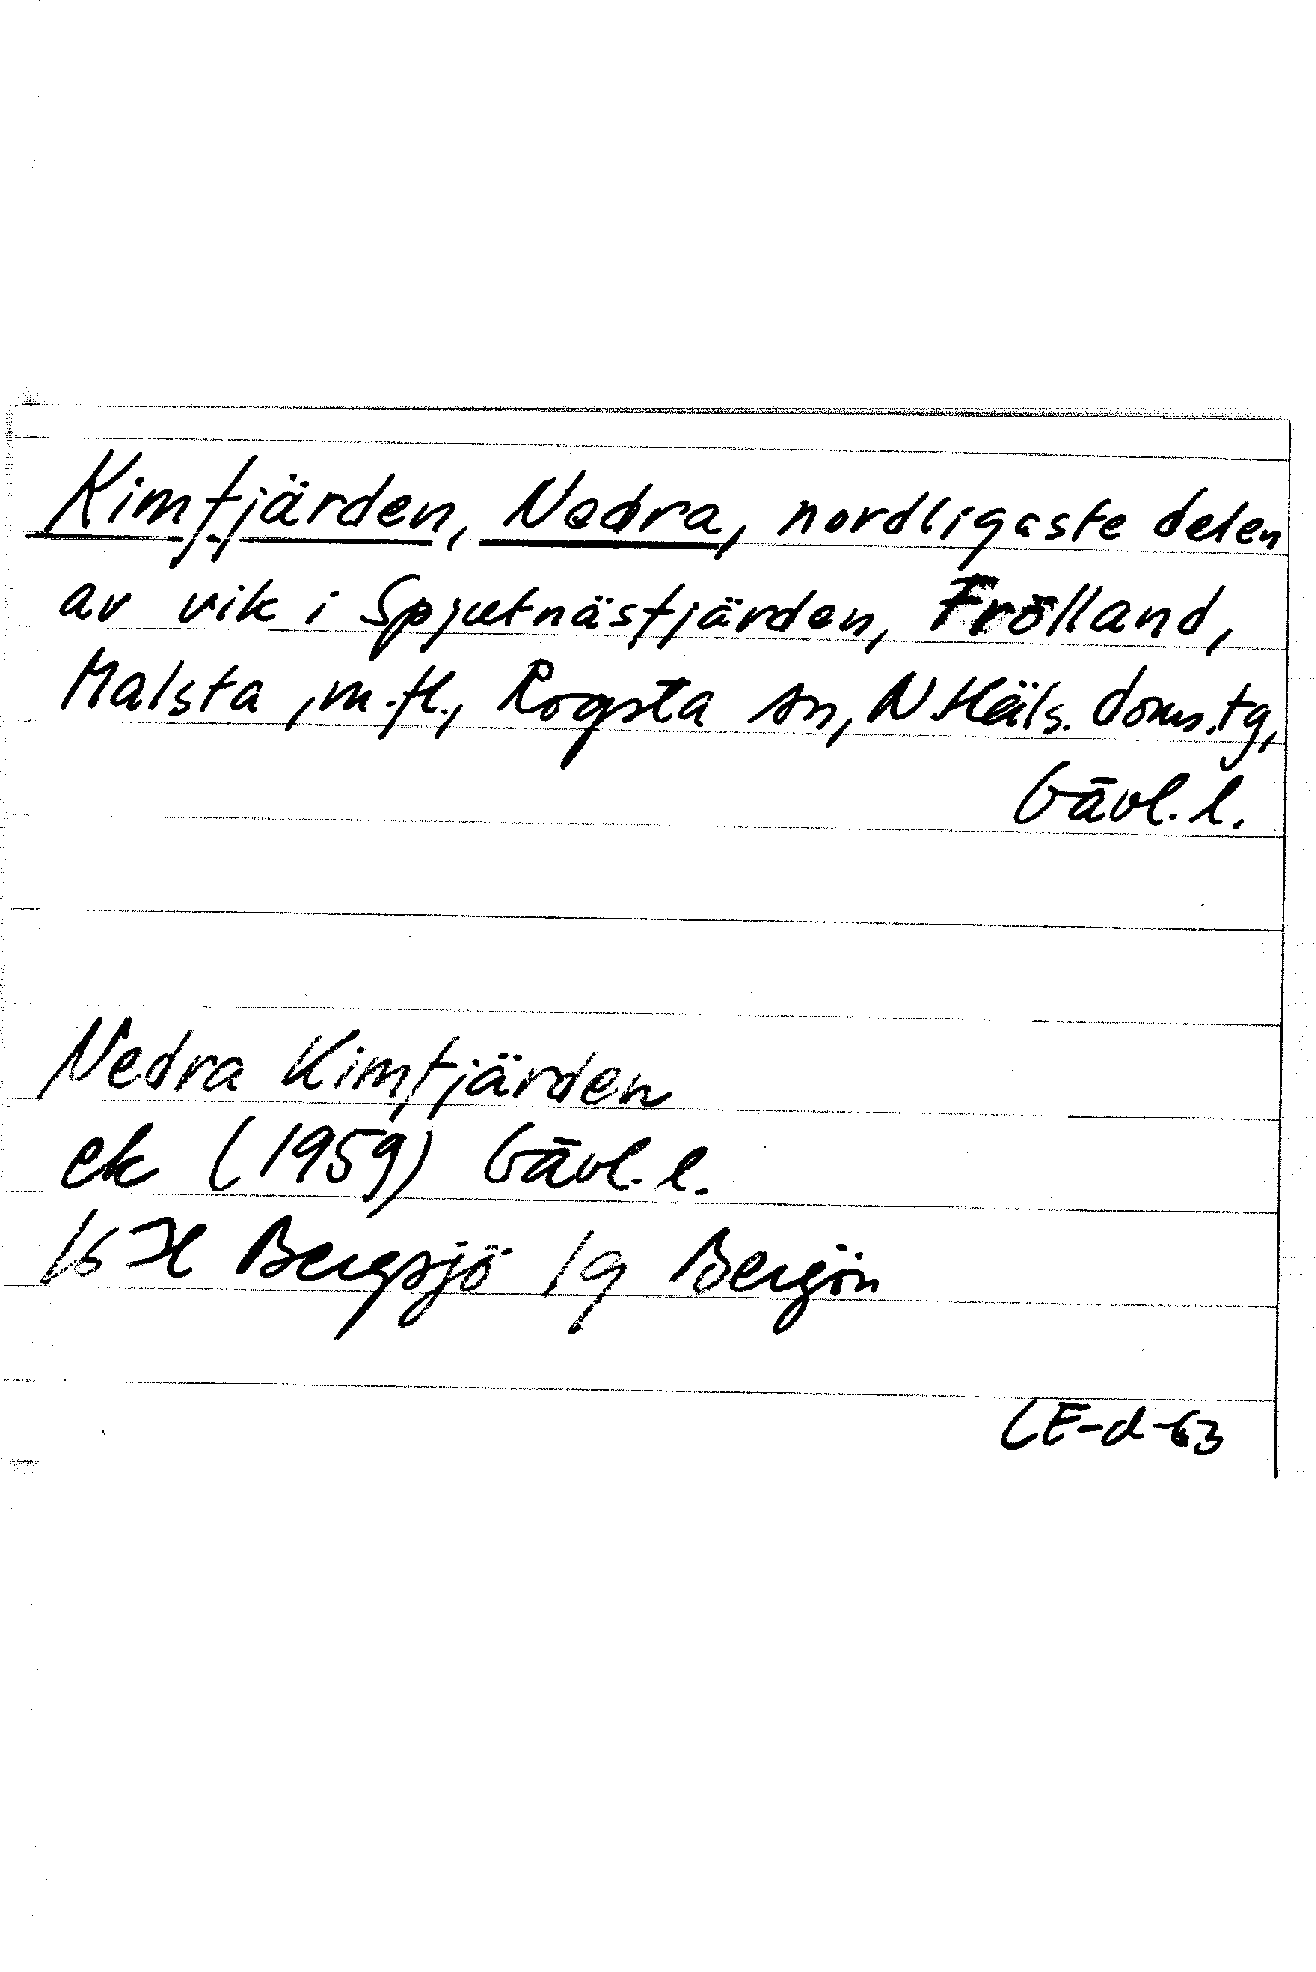 Kimfjärden, Nedra, nordligaste delen
av vik i Spjutnäsfjärden, Frölland,
Malsta, m.fl., Rogsta sn, N Häls. doms.tg,
Gävl. l.
Nedra Kimfjärden
ek (1959) Gävl. l.
16 H Bergsjö 1g Bergön
CE-d-63